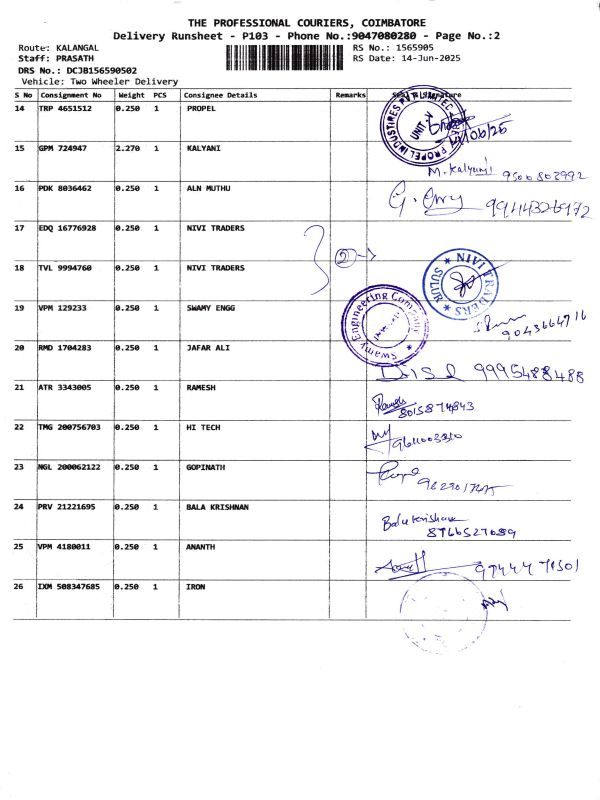 THE PROFESSIONAL COURIERS, COIMBATORE
Delivery Runsheet - P103 - Phone No.:9047080280 - Page No.:2
Route: KALANGAL
Staff: PRASATH
DRS No.: DCJB156590502
Vehicle: Two Wheeler Delivery
RS No.: 1565905
RS Date: 14-Jun-2025
S No Consignment No Weight PCS Consignee Details Remarks Seal & Signature
14 TRP 4651512 0.250 1 PROPEL
PROPEL INDUSTRIES PVT LIMITED
UNIT-V
15 GPM 724947 2.270 1 KALYANI
M. Kalyani 9500802992
16 PDK 8036462 0.250 1 ALN MUTHU
17 EDQ 16776928 0.250 1 NIVI TRADERS
2
18 TVL 9994760 0.250 1 NIVI TRADERS
TRADERS
SULUR
19 VPM 129233 0.250 1 SWAMY ENGG
Swamy Engineering Company
9043664716
20 RMD 1704283 0.250 1 JAFAR ALI
9995488488
21 ATR 3343005 0.250 1 RAMESH
Ramesh
8015874843
22 TMG 200756703 0.250 1 HI TECH
23 NGL 200062122 0.250 1 GOPINATH
24 PRV 21221695 0.250 1 BALA KRISHNAN
Balakrishnan
8766527689
25 VPM 4180011 0.250 1 ANANTH
26 IXM 508347685 0.250 1 IRON